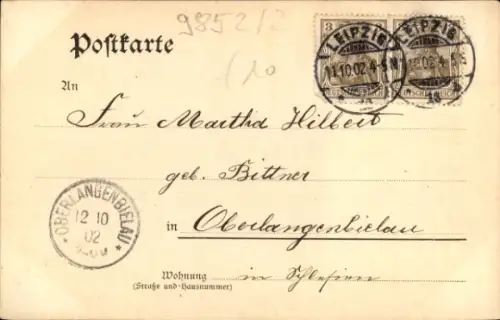 9852/3
/10
Postkarte
3 3
LEIPZIG
11.10.02 4-5N
LEIPZIG
13
An
Frau Martha Hilbert
geb. Bittner
in Oberlangenbielau
OBERLANGENBIELAU
12 10
02
Wohnung in Schlesien
(Straße und Hausnummer)